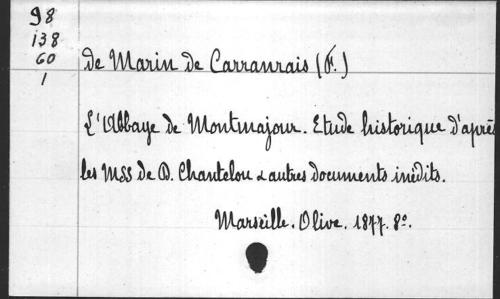 98
138
60
1
de Marin de Carranrais (F.)
L'Abbaye de Montmajour. Etude historique d'après
les MSS de D. Chantelou & autres documents inédits.
Marseille. Olive. 1877. 8º.